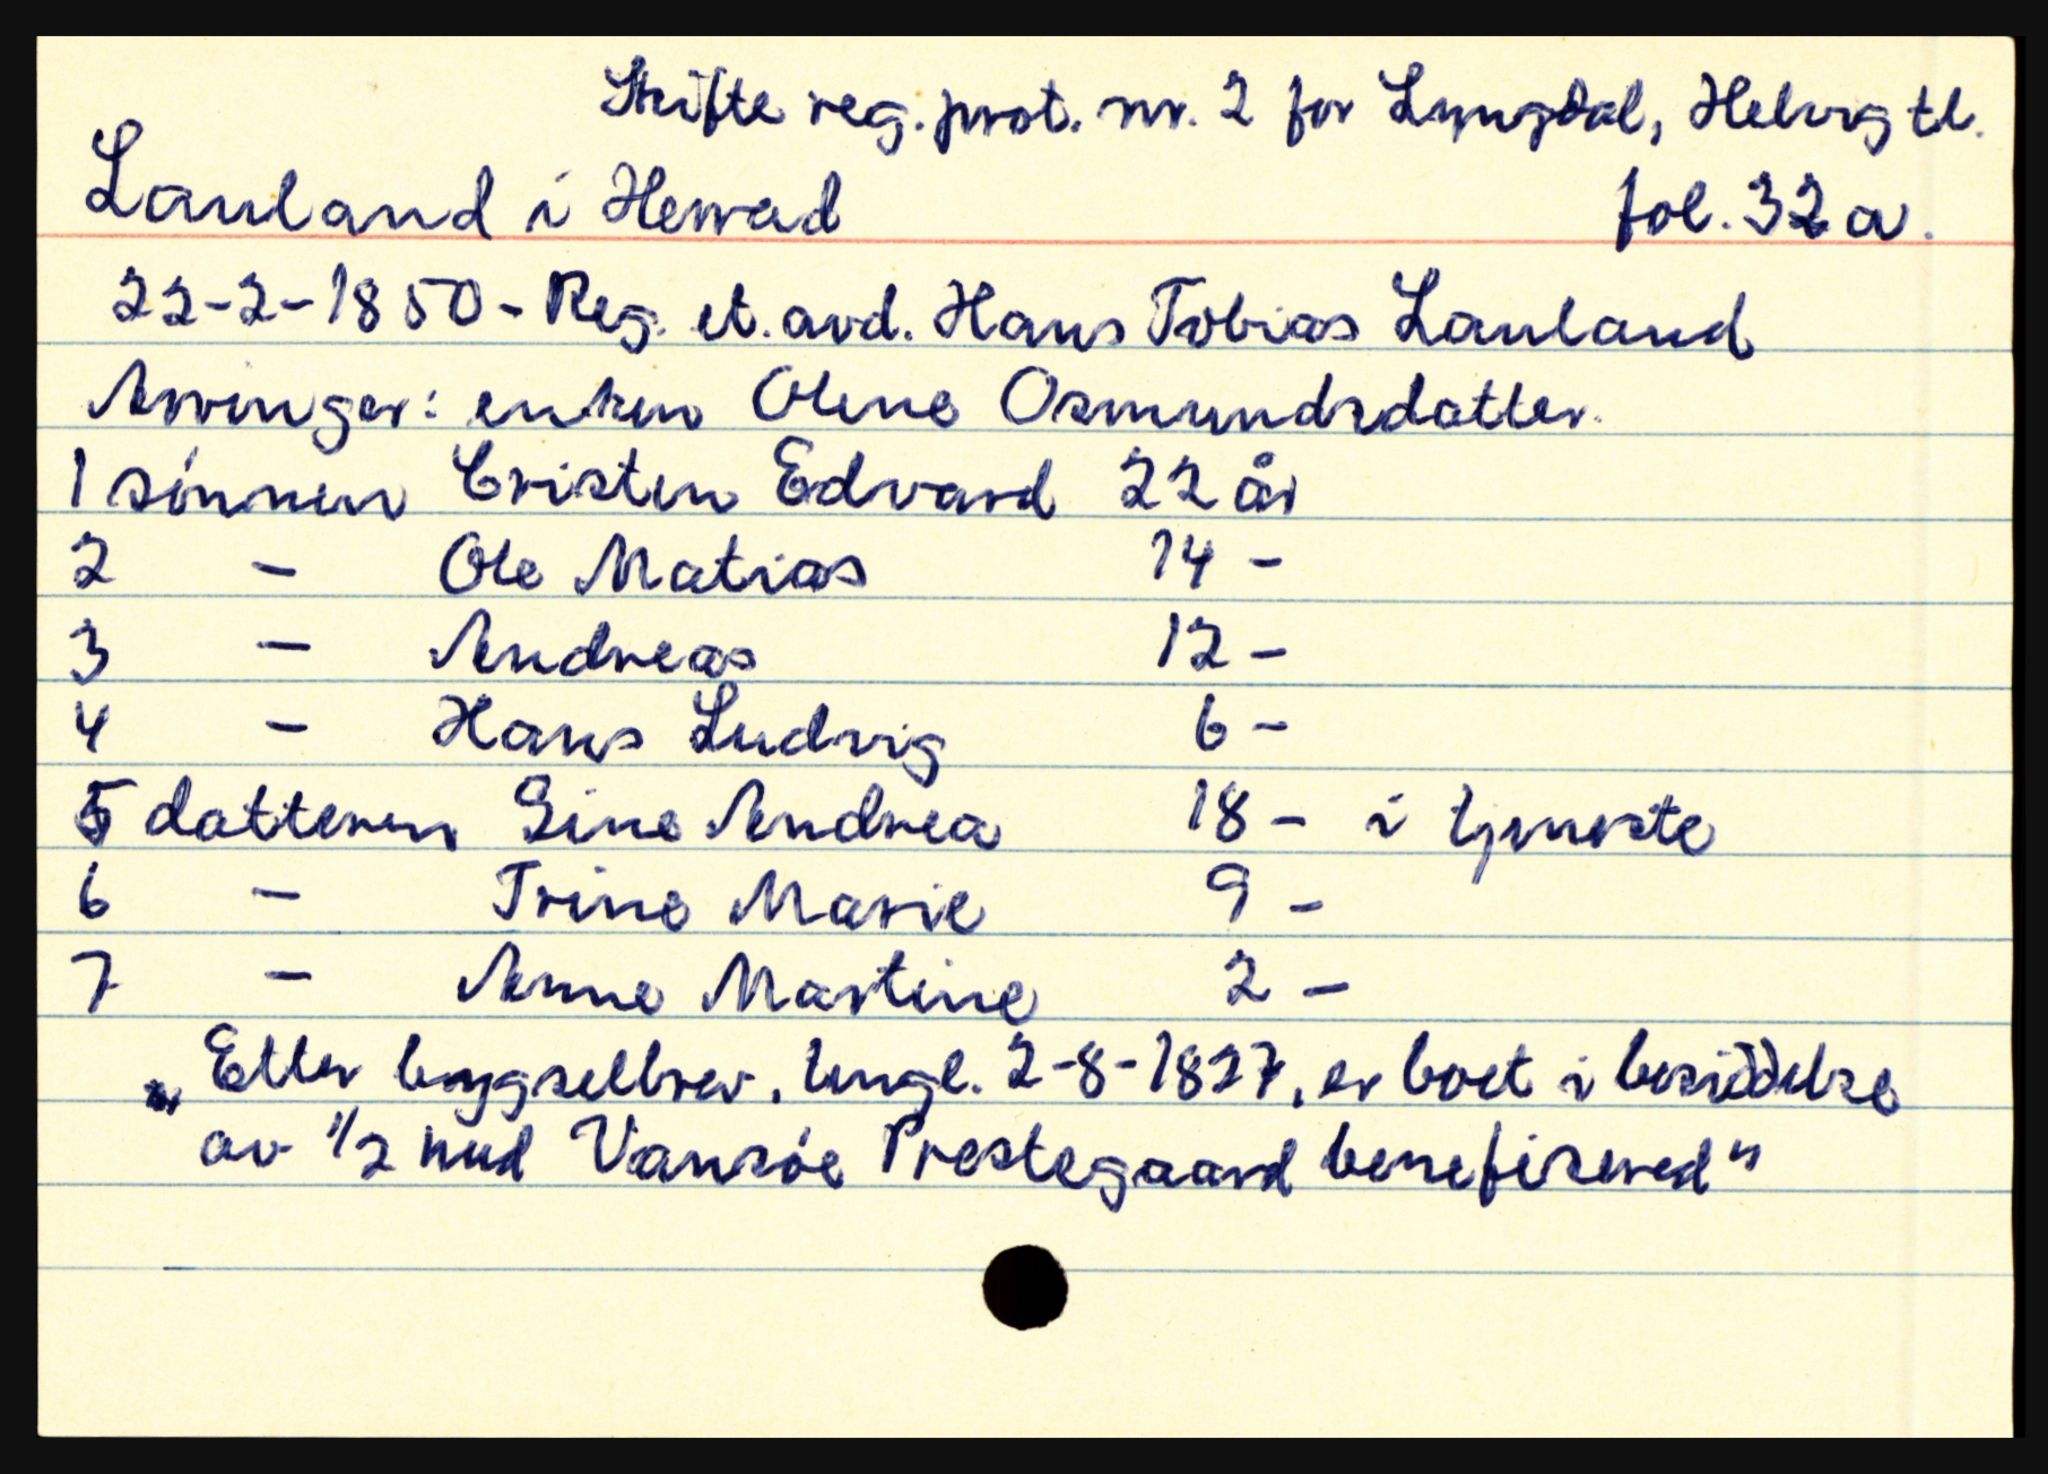 Skifte reg. prot. nr. 2 for Lyngdal, Helvig tl.
Lauland i Herrad fol. 32 a.
22-2-1850 - Reg. et. avd. Hans Tobias Lauland
Arvinger: enken Oline Osmundsdatter.
1 sønnen Cristen Edvard 22 år
2 - Ole Matias 14 -
3 - Andreas 12 -
4 - Hans Ludvig 6 -
5 datteren Sine Andrea 18 - i tjeneste
6 - Trine Marie 9 -
7 - Anne Martine 2 -
„Etter bygselbrev, tingl. 2-8-1827, er boet i besiddelse
av 1/2 hud Vansøe Prestegaard benefisered"